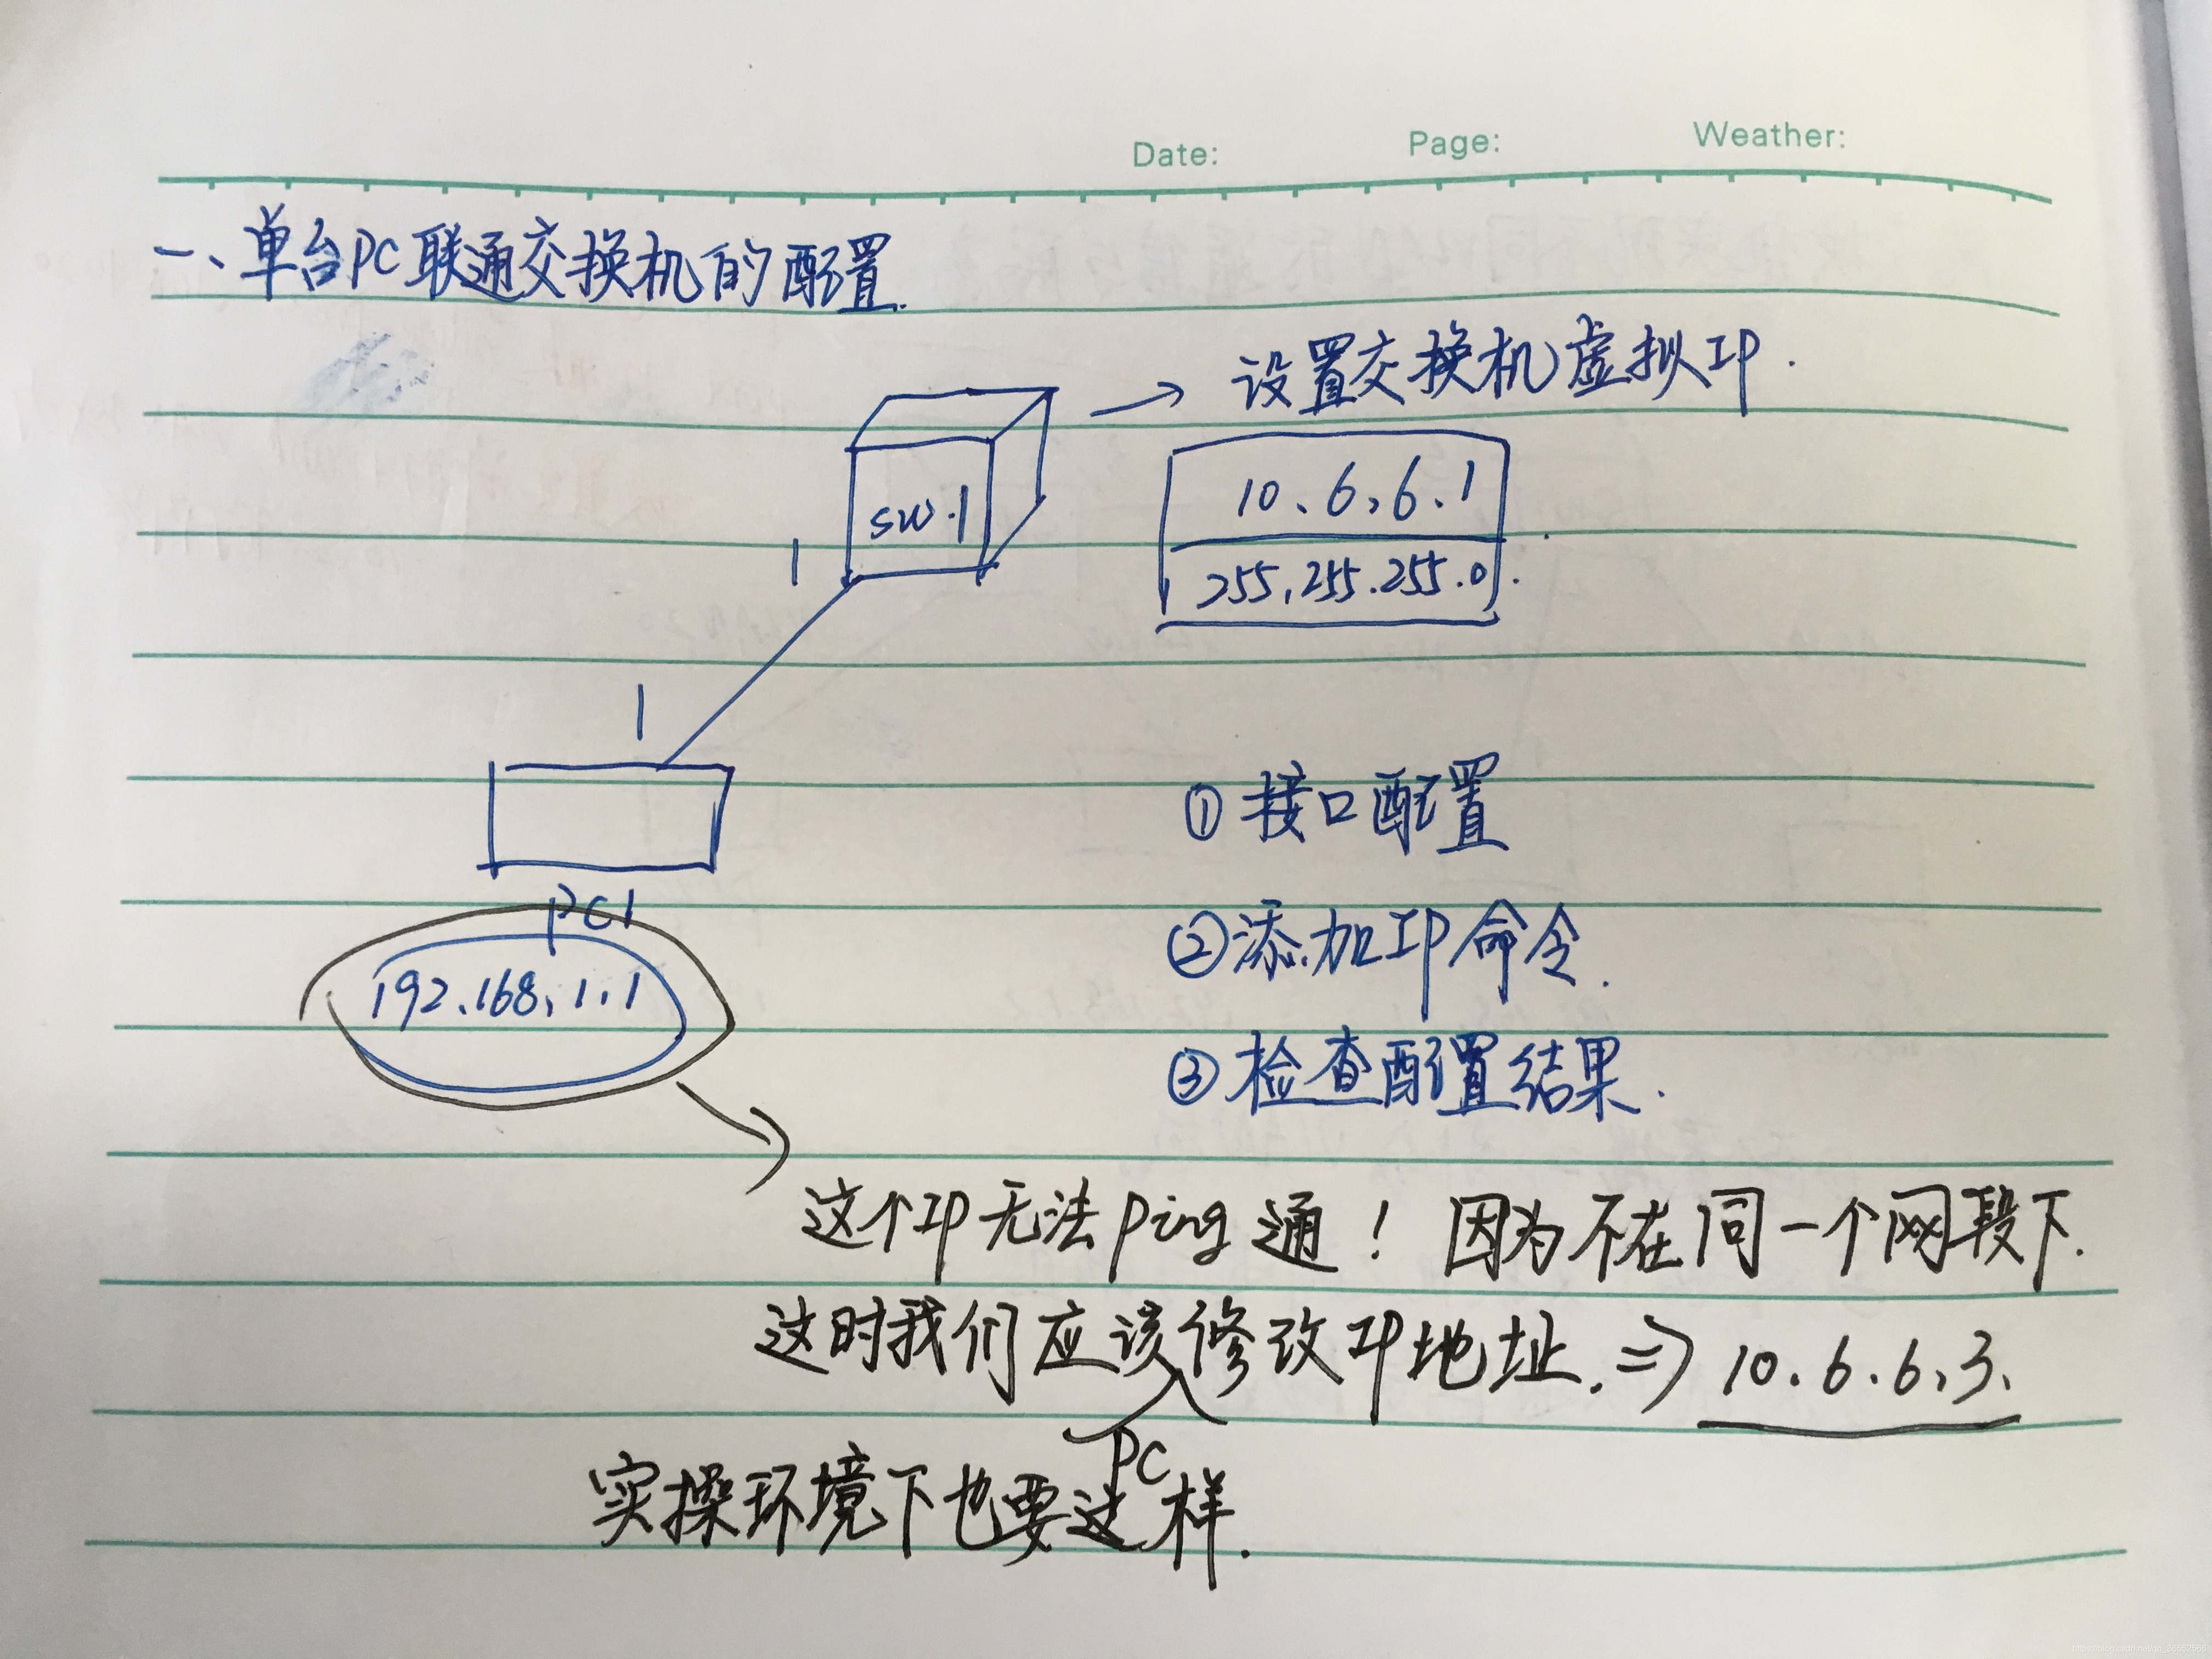 Date: Page: Weather:
一、单台PC联通交换机的配置.
→ 设置交换机虚拟IP.
sw.1
10.6.6.1
255.255.255.0
1
1
PC1
192.168.1.1
①接口配置
②添加IP命令.
③检查配置结果.
这个IP无法Ping通！因为不在同一个网段下.
这时我们应该修改IP地址.⇒ 10.6.6.3.
PC
实操环境下也要这样.